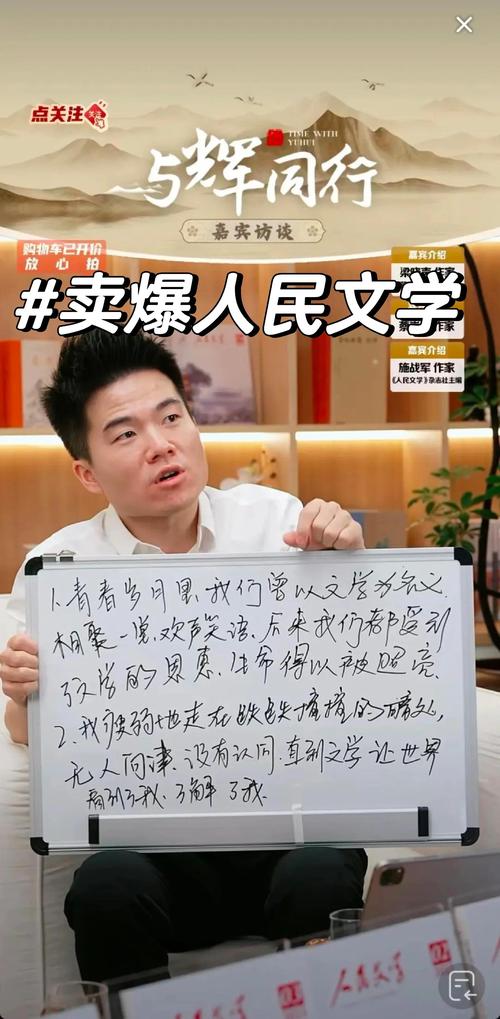 点关注
关注
TIME WITH
YUHUI
与辉同行
嘉宾访谈
购物车已开价
放心拍
嘉宾介绍
作家
#卖爆人民文学
作家
嘉宾介绍
施战军 作家
《人民文学》杂志社主编
1.青春岁月里,我们曾以文学为名义,
相聚一堂,欢声笑语,后来我们都受到
文学的恩惠,生命得以被照亮.
2.我疲弱地走在的暗处,
无人问津,没有认同,直到文学让世界
看到了我,了解了我.
人民文学